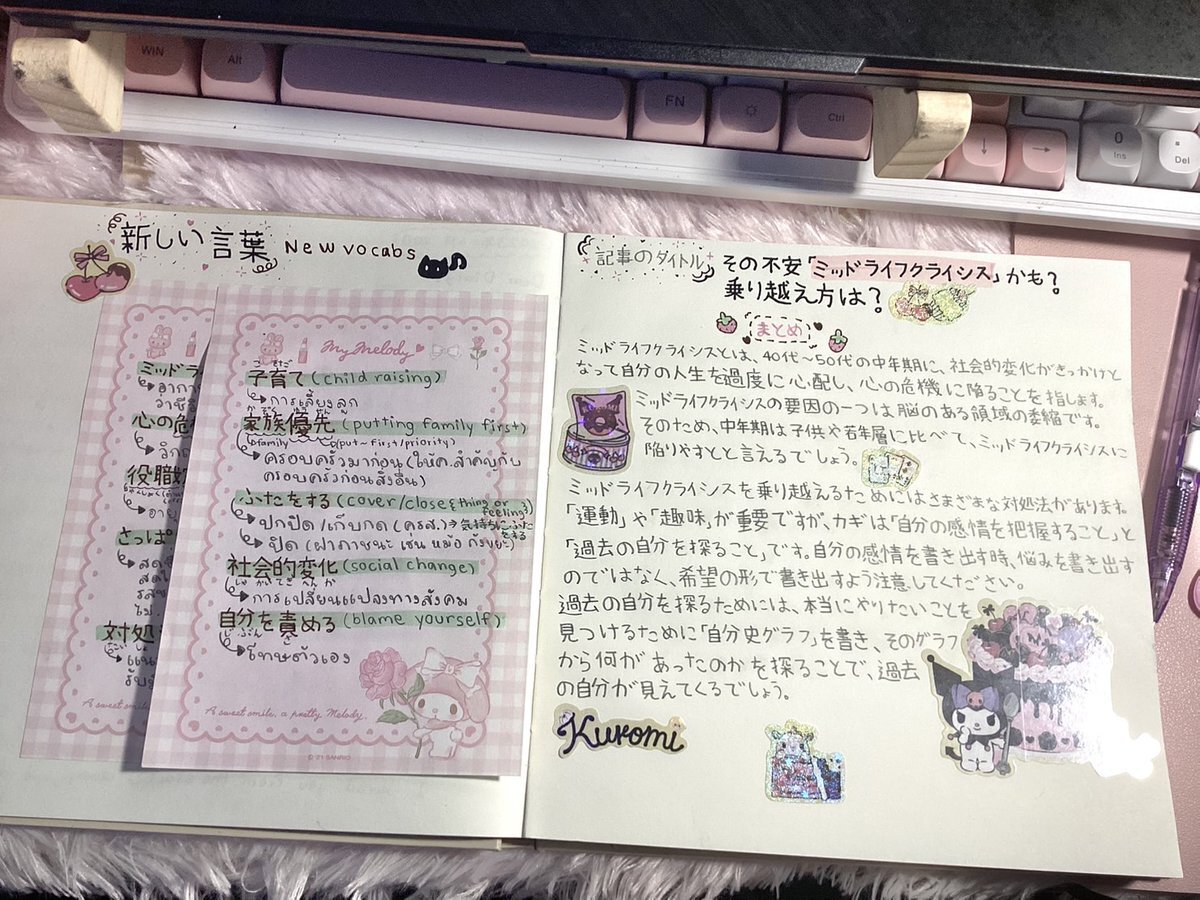 WIN
Alt
FN
Ctrl
↓
→
0
Ins
.
Del
新しい言葉 New vocabs
ミッドラ
心の危
役職
さっぱ
対処
A sweet smile, a
My Melody
こそだ
子育て (child raising)
การเลี้ยงลูก
家族優先 (putting family first)
family (put~first/priority)
ครอบครัวมาก่อน (ให้ค.สำคัญกับ
ครอบครัวก่อนสิ่งอื่น)
ふたをする (cover/close {thing or feeling})
ปกปิด/เก็บกด (ครส.) → 気持ちにふたをする
ปิด (ฝาภาชนะ เช่น หม้อ ถังขยะ)
社会的変化 (social change)
การเปลี่ยนแปลงทางสังคม
自分を責める (blame yourself)
โทษตัวเอง
A sweet smile, a pretty Melody.
© '21 SANRIO
記事のタイトル その不安「ミッドライフクライシス」かも?
乗り越え方は?
まとめ
ミッドライフクライシスとは、40代〜50代の中年期に、社会的変化がきっかけと
なって自分の人生を過度に心配し、心の危機に陥ることを指します。
ミッドライフクライシスの要因の一つは脳のある領域の委縮です。
そのため、中年期は子供や若年層に比べて、ミッドライフクライシスに
陥りやすとと言えるでしょう。
ミッドライフクライシスを乗り越えるためにはさまざまな対処法があります。
「運動」や「趣味」が重要ですが、カギは「自分の感情を把握すること」と
「過去の自分を探ること」です。自分の感情を書き出す時、悩みを書き出す
のではなく、希望の形で書き出すよう注意してください。
過去の自分を探るためには、本当にやりたいことを
見つけるために「自分史グラフ」を書き、そのグラフ
から何があったのかを探ることで、過去
の自分が見えてくるでしょう。
Kuromi